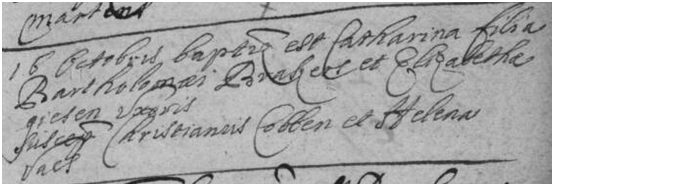 Martens
16 Octobris baptiz est Catharina filia
Bartholomæi Brabers et Elizabethæ
giesen Uxoris
Suscep Christianus Cobben et Helena
Vaes